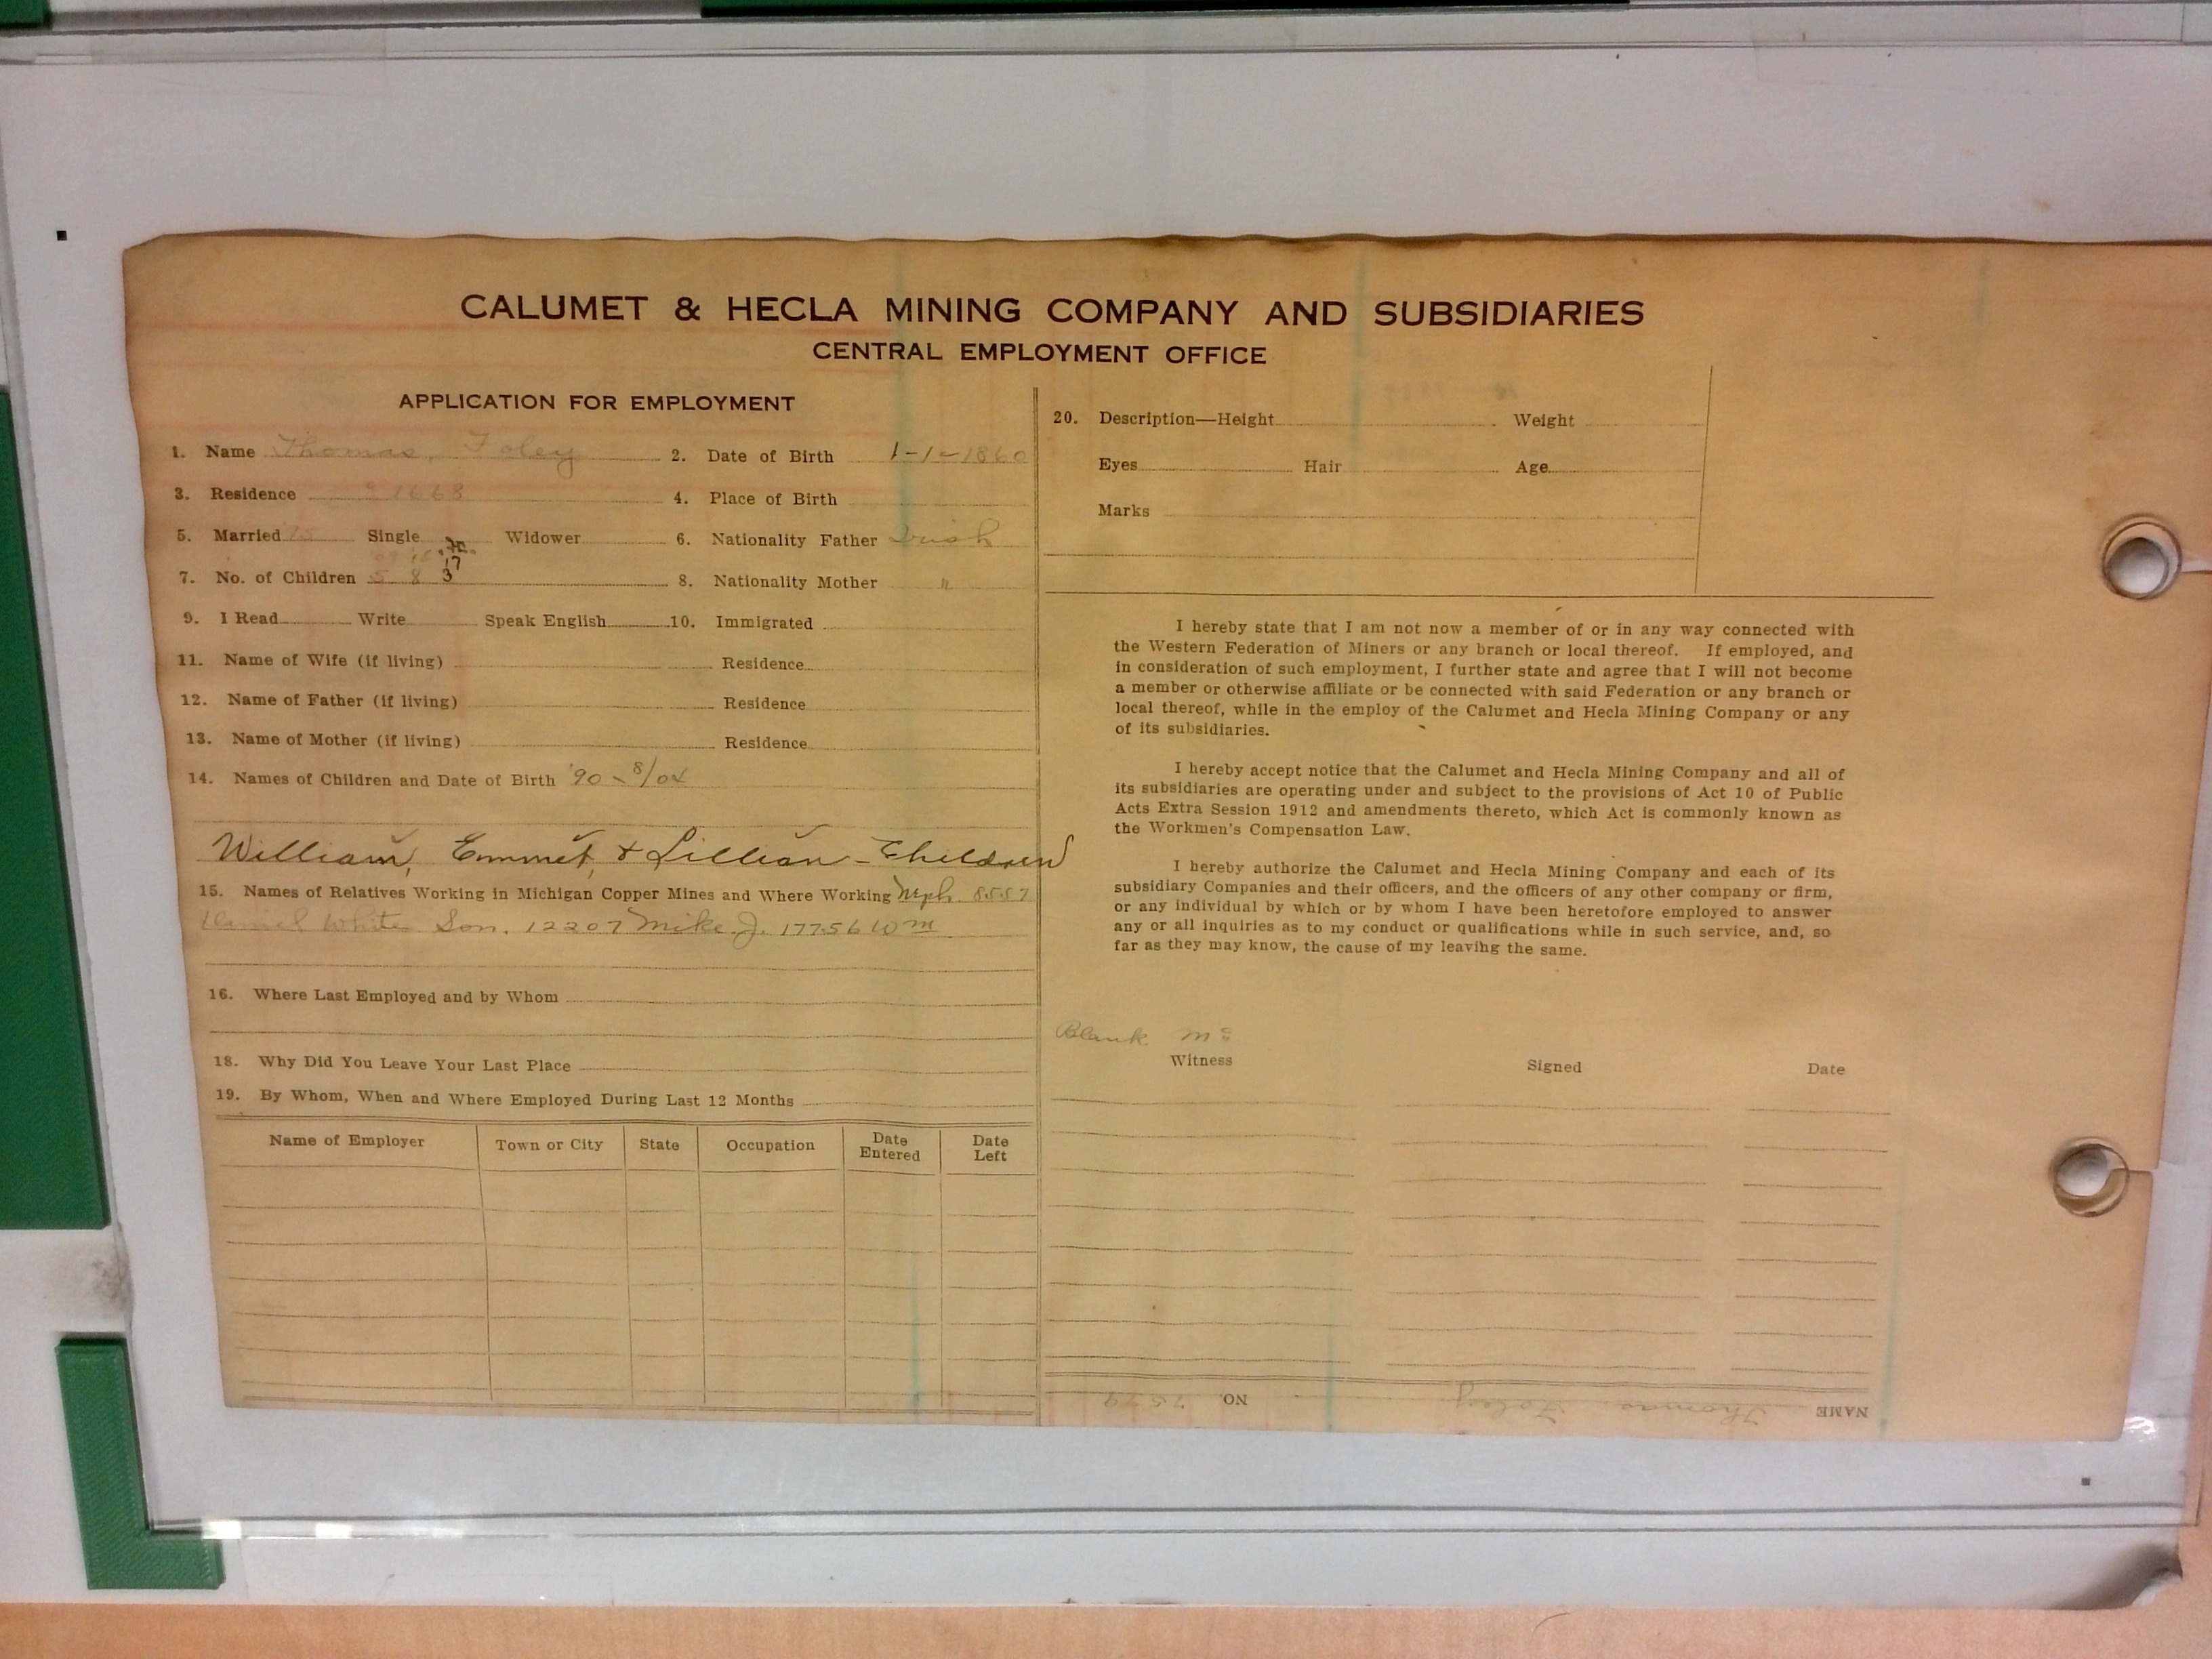 CALUMET & HECLA MINING COMPANY AND SUBSIDIARIES
CENTRAL EMPLOYMENT OFFICE
APPLICATION FOR EMPLOYMENT
1. Name Thomas Foley 2. Date of Birth 1-1-1860
3. Residence 1668 4. Place of Birth
5. Married Single Widower 6. Nationality Father Irish
17
7. No. of Children 5 8 3 8. Nationality Mother "
9. I Read Write Speak English 10. Immigrated
11. Name of Wife (if living) Residence
12. Name of Father (if living) Residence
13. Name of Mother (if living) Residence
14. Names of Children and Date of Birth '90 - 8/04
William, Emmet, & Lillian - Children
15. Names of Relatives Working in Michigan Copper Mines and Where Working Neph. 8557
Daniel White Son. 12207 Mike J. 17756 Wm
16. Where Last Employed and by Whom
18. Why Did You Leave Your Last Place
19. By Whom, When and Where Employed During Last 12 Months
Name of Employer Town or City State Occupation Date Entered Date Left
20. Description—Height Weight
Eyes Hair Age
Marks
I hereby state that I am not now a member of or in any way connected with
the Western Federation of Miners or any branch or local thereof. If employed, and
in consideration of such employment, I further state and agree that I will not become
a member or otherwise affiliate or be connected with said Federation or any branch or
local thereof, while in the employ of the Calumet and Hecla Mining Company or any
of its subsidiaries.
I hereby accept notice that the Calumet and Hecla Mining Company and all of
its subsidiaries are operating under and subject to the provisions of Act 10 of Public
Acts Extra Session 1912 and amendments thereto, which Act is commonly known as
the Workmen's Compensation Law.
I hereby authorize the Calumet and Hecla Mining Company and each of its
subsidiary Companies and their officers, and the officers of any other company or firm,
or any individual by which or by whom I have been heretofore employed to answer
any or all inquiries as to my conduct or qualifications while in such service, and, so
far as they may know, the cause of my leaving the same.
Blank
Witness Signed Date
NAME Thomas Foley NO. 7579